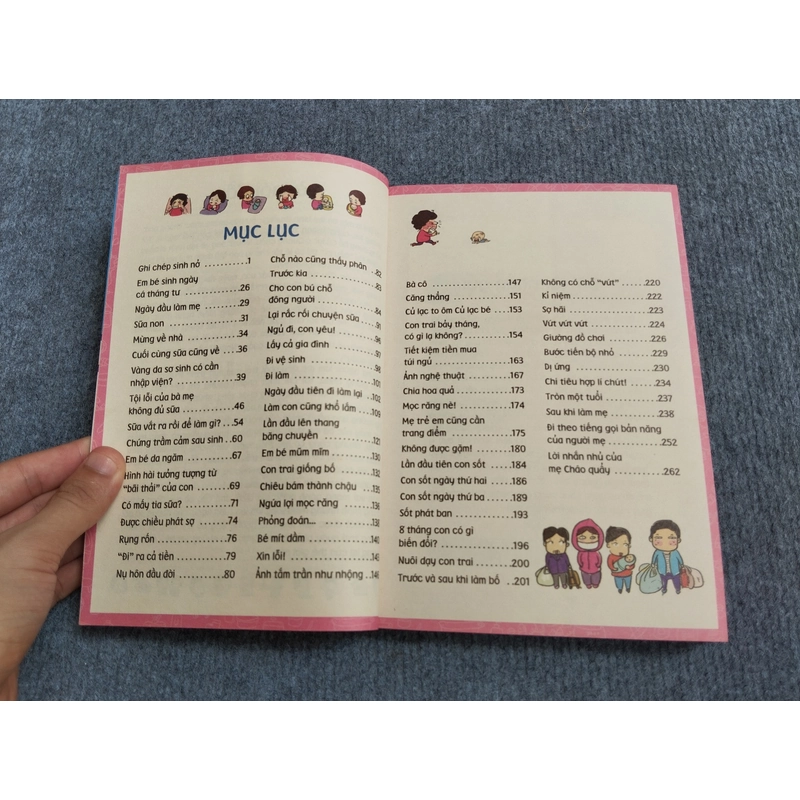 MỤC LỤC
Ghi chép sinh nở ...........1
Em bé sinh ngày
cá tháng tư ...............26
Ngày đầu làm mẹ ..........29
Sữa non ..................31
Mừng về nhà ..............34
Cuối cùng sữa cũng về ....36
Vàng da sơ sinh có cần
nhập viện? ...............39
Tội lỗi của bà mẹ
không đủ sữa .............46
Sữa vắt ra rồi để làm gì? ...54
Chứng trầm cảm sau sinh ..60
Em bé da ngăm ............67
Hình hài tưởng tượng từ
"bãi thải" của con .......69
Có mấy tia sữa? ..........71
Được chiều phát sợ .......74
Rụng rốn .................76
"Đi" ra cả tiền ..........79
Nụ hôn đầu đời ...........80
Chỗ nào cũng thấy phân ..82
Trước kia ................83
Cho con bú chỗ
đông người ...............84
Lại rắc rối chuyện sữa ...
Ngủ đi, con yêu! .........
Lấy cả gia đình ..........
Đi vệ sinh ...............
Đi làm ...................101
Ngày đầu tiên đi làm lại ..102
Làm con cũng khổ lắm ....109
Lần đầu lên thang
băng chuyền ..............121
Em bé mũm mĩm ............130
Con trai giống bố ........132
Chiêu bám thành chậu .....135
Ngứa lợi mọc răng ........136
Phỏng đoán... ............138
Bé mít dầm ...............
Xin lỗi! .................
Ảnh tắm trần như nhộng ..
Bà cô ....................147
Căng thẳng ...............151
Củ lạc to ôm Củ lạc bé ...153
Con trai bảy tháng,
có gì lạ không? ..........154
Tiết kiệm tiền mua
túi ngủ ..................163
Ảnh nghệ thuật ...........167
Chia hoa quả .............173
Mọc răng nè! .............174
Mẹ trẻ em cũng cần
trang điểm ...............175
Không được gặm! ..........180
Lần đầu tiên con sốt .....184
Con sốt ngày thứ hai .....186
Con sốt ngày thứ ba ......189
Sốt phát ban .............193
8 tháng con có gì
biến đổi? ................196
Nuôi dạy con trai ........200
Trước và sau khi làm bố ..201
Không có chỗ "vứt" .......220
Kỉ niệm ..................222
Sợ hãi ...................223
Vứt vứt vứt ..............224
Giường đồ chơi ...........226
Bước tiến bộ nhỏ .........229
Dị ứng ...................230
Chi tiêu hợp lí chút! ....234
Tròn một tuổi ............237
Sau khi làm mẹ ...........238
Đi theo tiếng gọi bản năng
của người mẹ .............252
Lời nhắn nhủ của
mẹ Cháo quẩy .............262